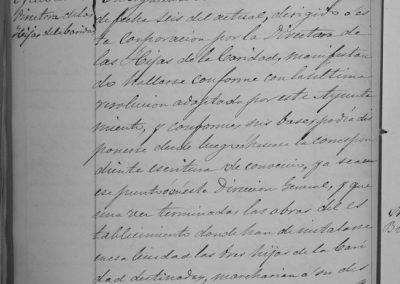 Directora de las
Hijas de la Caridad
de fecha seis del actual, dirigido á es
ta corporacion por la Directora de
las Hijas de la Caridad, manifestan
do hallarse conforme con la última
resolucion adoptada por este Ayunta
miento, y conforme sus bases, podia dis
ponerse desde luego hacerse la correspon
diente escritura de convenio, ya sea en
ese punto ó en esta Direccion General, y que
una vez terminadas las obras del es
tablecimiento donde han de instalarse
enseguida las tres hijas de la Cari
dad destinadas, marcharian a su des